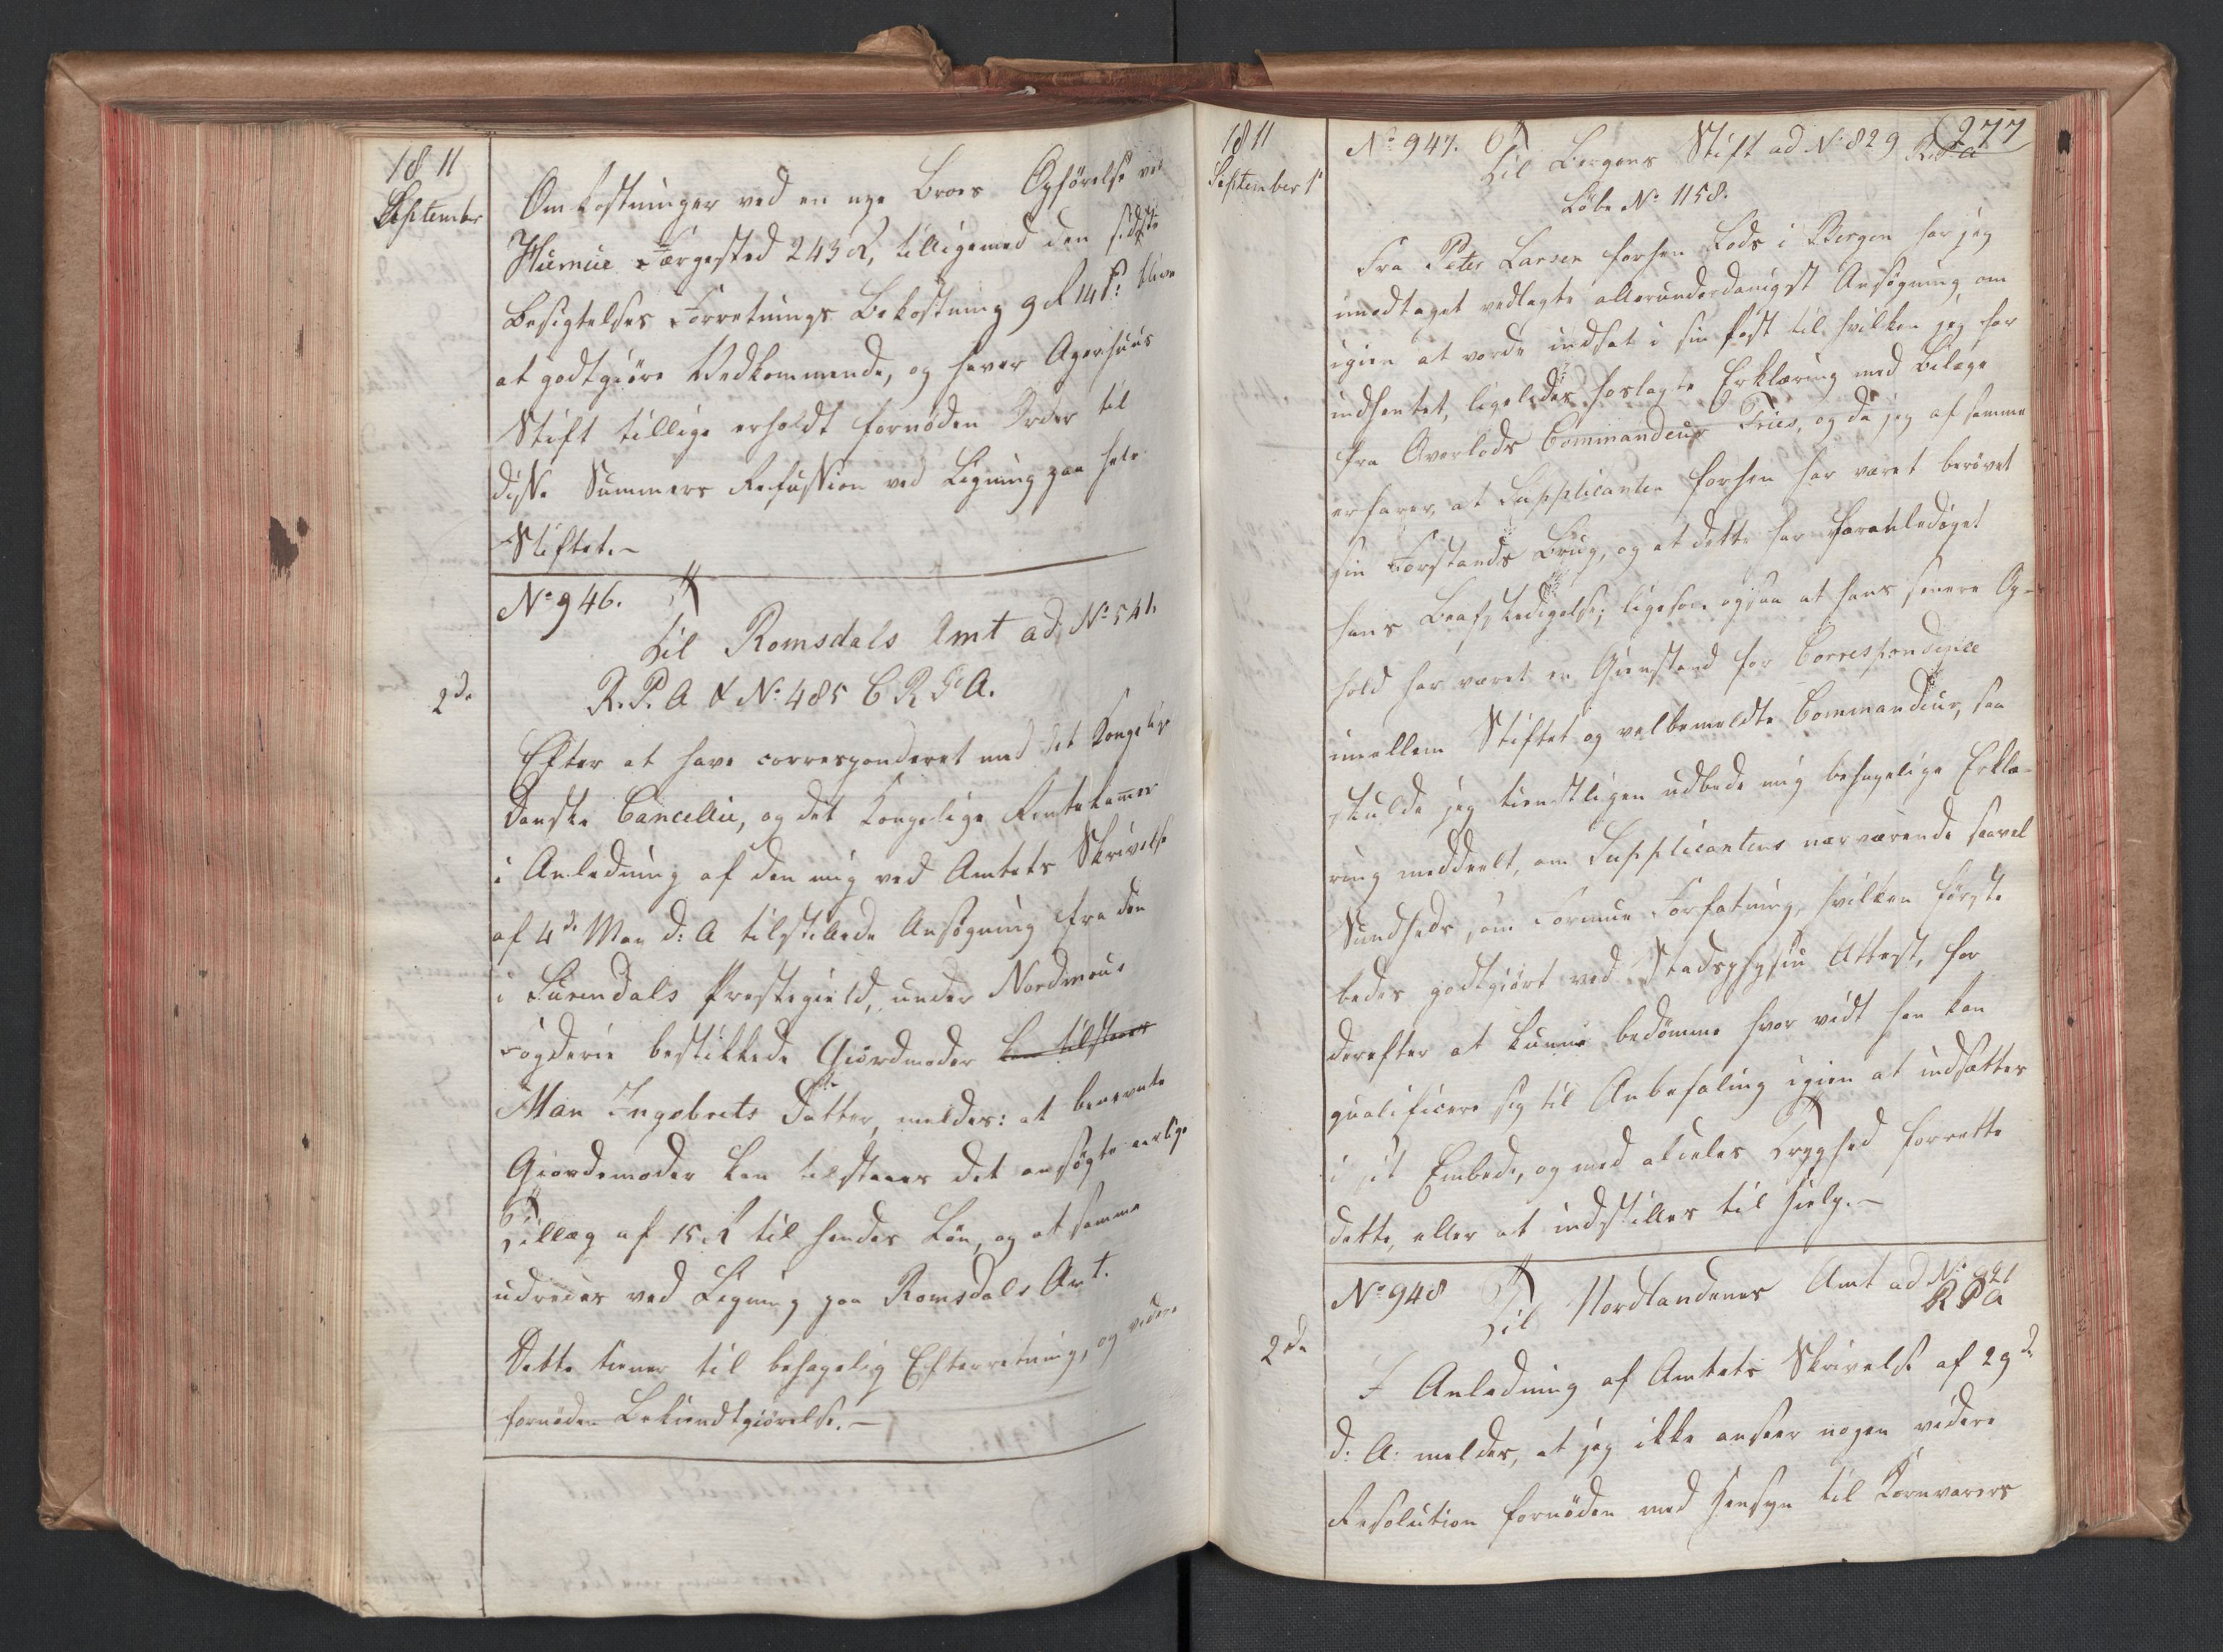 1811
September
Omkostninger ved en nye Broes Opførelse ved
Hurnue Færgested 243 Rd, tilligemed den sidste
Besigtelses Forretnings Bekostning 9 Rd 14 s: blive
at godtgiøre Vedkommende, og haver Agershuus
Stift tillige erholdt fornøden Order til
disse Summers Refussion ved Ligning paa hele
Stiftet.-
No 946.
Til Romsdals Amt ad No 541.
2de
R. P. A & No 485 C R P A.
Efter at have corresponderet med det Kongelige
Danske Cancellie, og det Kongelige Rentekammer
i Anledning af den mig ved Amtets Skrivelse
af 4de May d: A tilstillede Ansøgning fra den
i Surendals Prestegield, under Nordmøers
Fogderie bestikkede Giordmoder kan tilstaaes
Mari Ingebrets Datter, meldes: at benevnte
Giordemoder kan tilstaaes det ansøgte aarlige
Tillæg af 15 Rd til hendes Løn, og at samme
udredes ved Ligning paa Romsdals Amt.
Dette tiener til behagelig Efterretning, og videre
fornøden Bekiendtgiørelse.-
1811
September 1
277
No 947.
Til Bergens Stift ad No 829 R.P.A
Løbe No 1158.
Fra Peter Larsen forhen Lods i Bergen har jeg
modtaget vedlagte allerunderdanigst Ansøgning om
igien at vorde indsat i sin Post til hvilken jeg har
indhentet, ligeledes hoslagte Erklæring med Bilage
fra Overlods Commandeur Fries, og da jeg af samme
erfarer, at Supplicanten forhen har været berøvet
sin Forstands Brug, og at dette har foranlediget
hans Beafskedigelse; ligesom ogsaa at hans senere Op-
hold har været en Gienstand for Correspondence
imellem Stiftet og velbemeldte Commandeur, saa
skulde jeg tienstligen udbede mig behagelige Erklæ-
ring meddeelt, om Supplicantens nærværende saavel
Sundheds som Formue Forfatning, hvilken første
bedes godtgiort ved Stadsphysici Attest, for
derefter at kunne bedømme hvor vidt han kan
qualificere sig til Anbefaling igien at indsættes
i sit Embede, og med aldeles Tryghed forrette
dette, eller at indstilles til Hielp.-
No 948
Til Nordlandenes Amt ad No 921
R P A
2de
I Anledning af Amtets Skrivelse af 29de
d: A: meldes, at jeg ikke anseer nogen videre
Resolution fornøden med Hensyn til Kornvarers